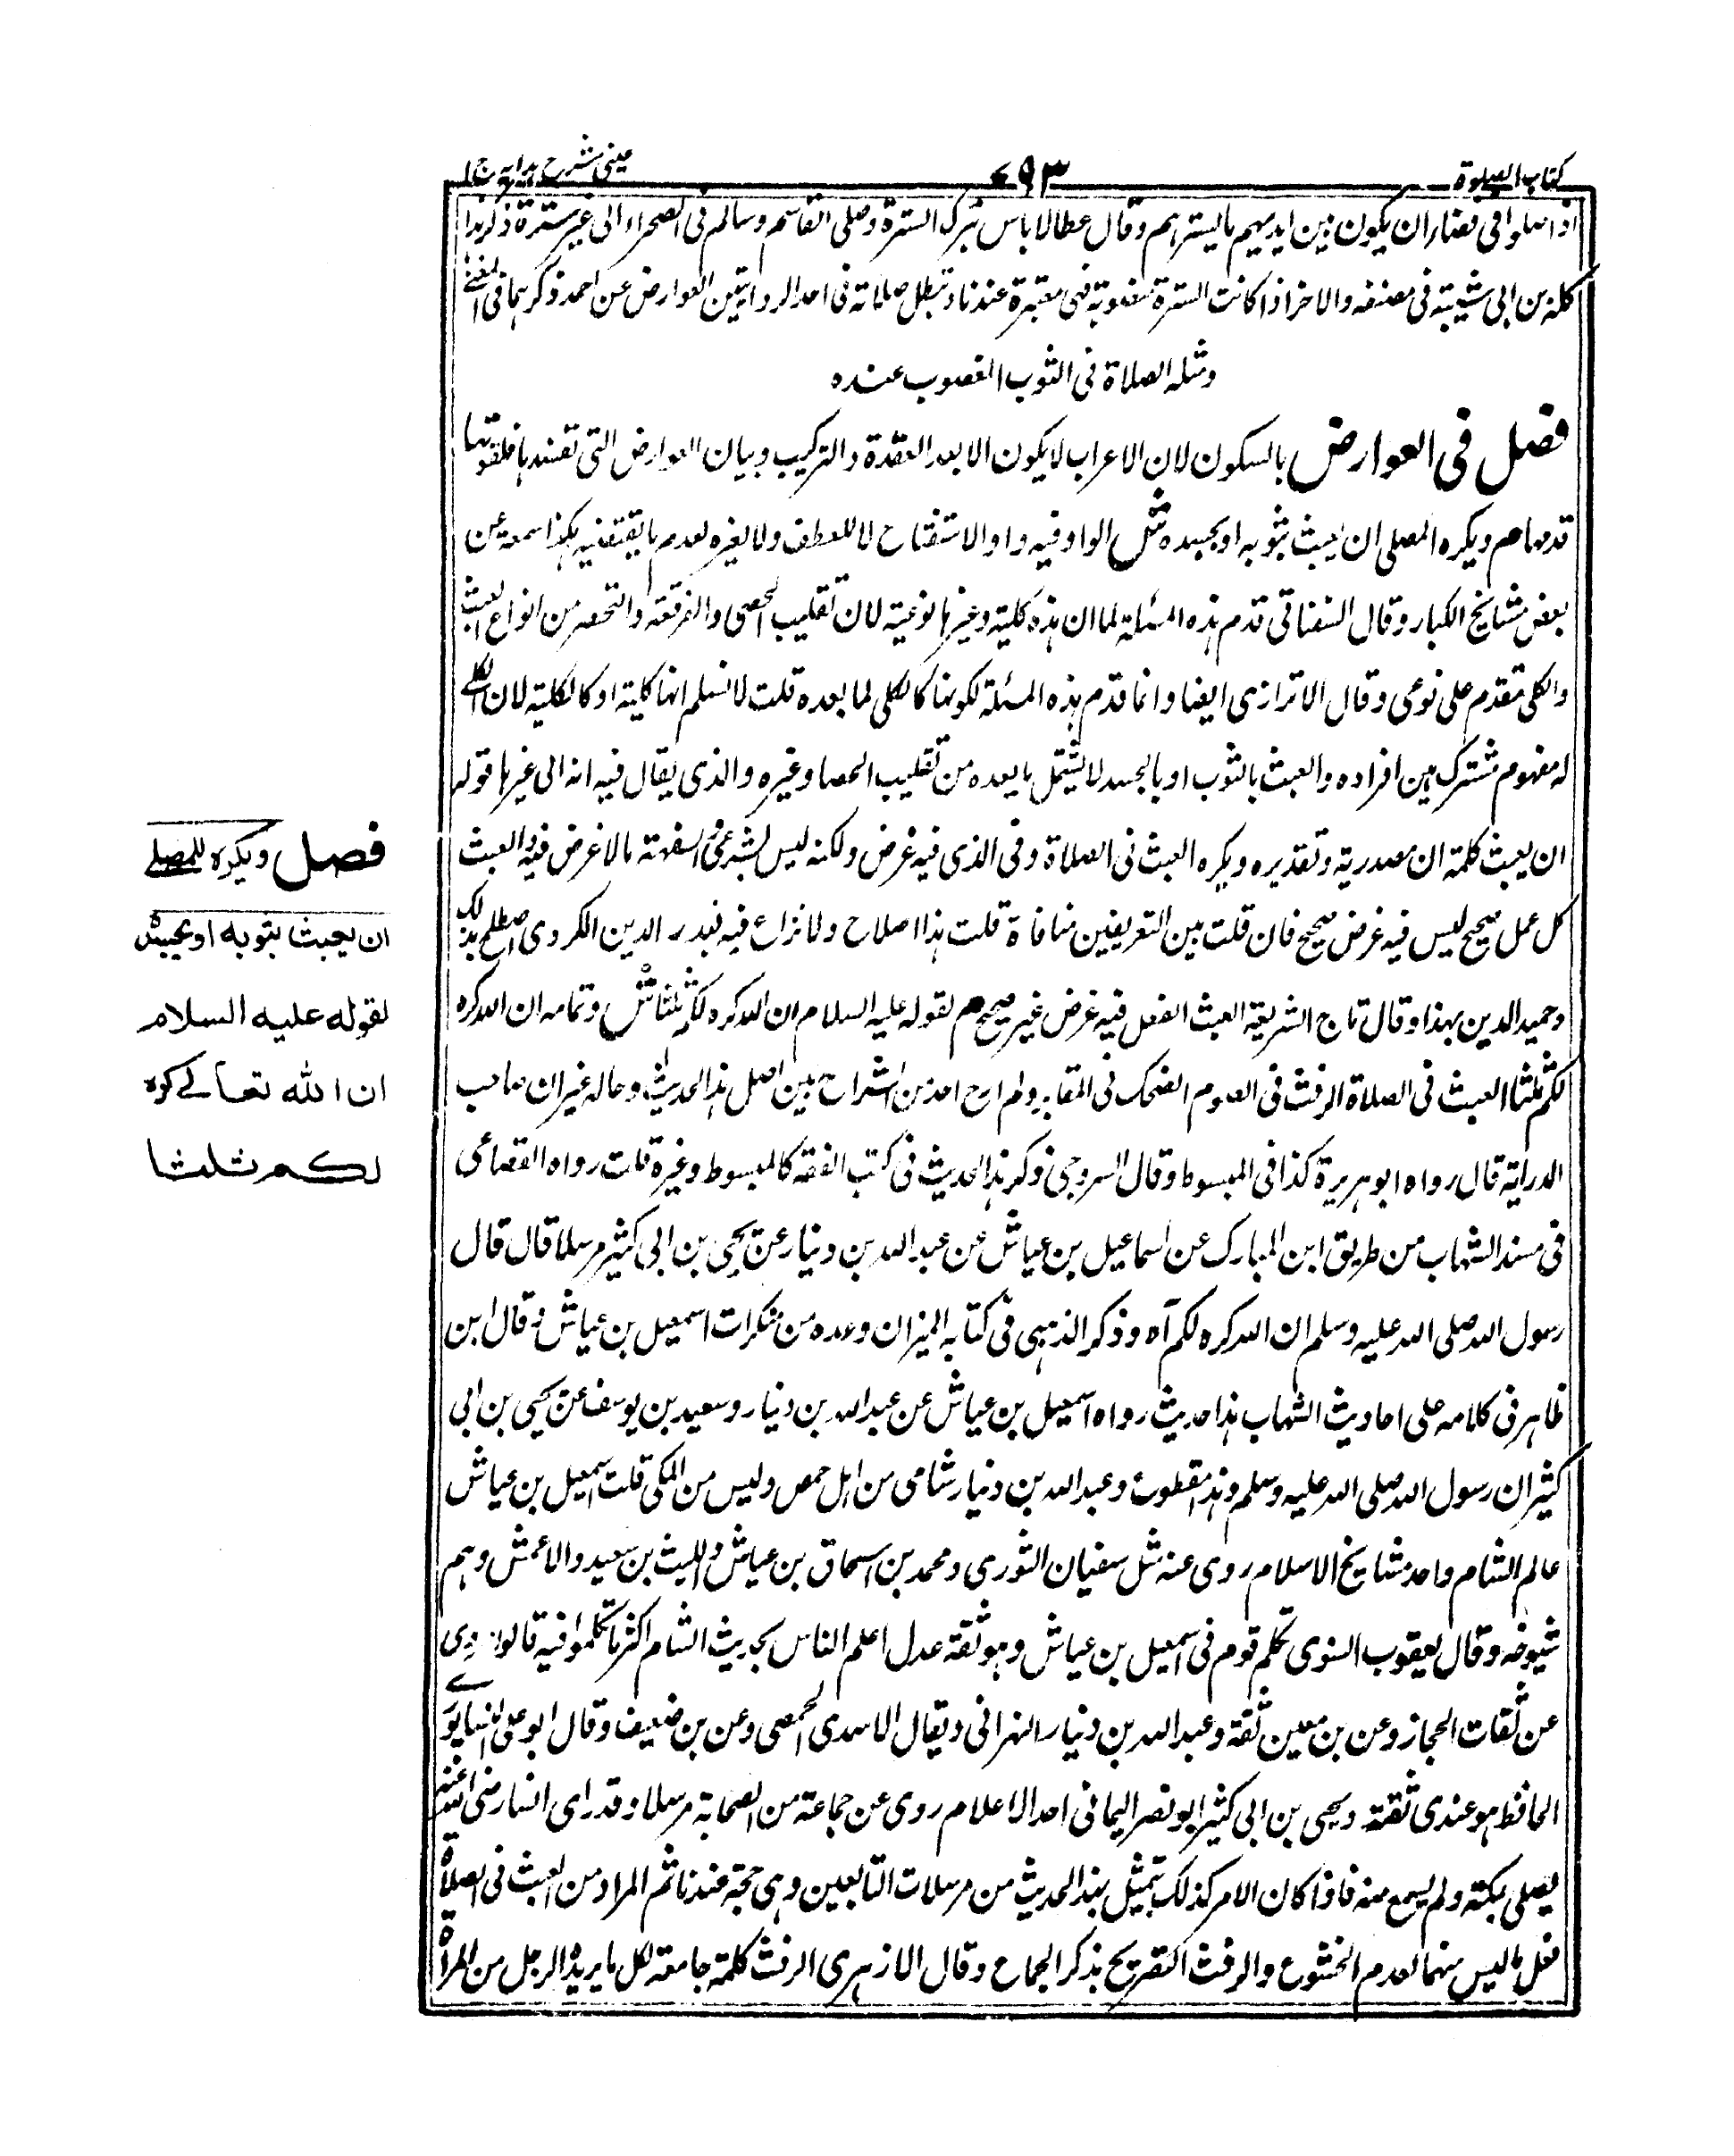 كتاب الصلوة
٧٩٣
عينى شرح هدايه ج ا
اذا صلوا فى فضاء ان يكون بين ايديهم ما يسترهم وقال عطا لا باس بترك السترة وصلى القاسم وسالم فى الصحراء الى غير سترة ذكر هذا
كله بن ابى شيبة فى مصنفه والاخر اذا كانت السترة مغصوبة فهى معتبرة عندنا وتبطل صلاته فى احد الروايتين العوارض عن احمد ذكرهما فى المغنى
ومثله الصلاة فى الثوب المغصوب عنده
فصل فى العوارض بالسكون لان الاعراب لا يكون الا بعد العقدة والتركيب وبيان العوارض التى تفسدها فلقوتها
قدمها م ويكره المصلى ان يعبث بثوبه او بجسده ش الواو فيه واو الاستفتاح لا للعطف ولا لغيره لعدم ما يقتضيه هكذا سمعه عن
بعض مشايخ الكبار وقال السغناقى قدم هذه المسئلة لما ان هذه كلية وغيرها نوعية لان تقليب الحصى والفرقعة والتخصر من انواع العبث
والكلى مقدم على نوعى وقال الاترازى ايضا وانما قدم هذه المسئلة لكونها كالكلى لما بعده قلت لا نسلم انها كلية او كالكلية لان الكلى
له مفهوم مشترك بين افراده والعبث بالثوب او بالجسد لا يشتمل ما بعده من تقليب الحصا وغيره والذى يقال فيه انه الى غيرها قوله
ان يعبث كلمة ان مصدرية وتقديره ويكره العبث فى الصلاة وفى الذى فيه غرض ولكنه ليس بشرعى والسفه ما لا غرض فيه والعبث
كل عمل صحيح ليس فيه غرض صحيح فان قلت بين التعريفين منافاة قلت هذا اصلاح ولا نزاع فيه فبدر الدين الكردى اصطلح بذلك
وحميد الدين بهذا وقال تاج الشريعة العبث الفعل فيه غرض غير صحيح م لقوله عليه السلام ان الله كره لكم ثلثا ش وتمامه ان الله كره
لكم ثلثا العبث فى الصلاة الرفث فى الصوم الضحك فى المقابر ولم ار احد من الشراح بين اصل هذا الحديث وحاله غير ان صاحب
الدراية قال رواه ابو هريرة كذا فى المبسوط وقال السروجى ذكر هذا الحديث فى كتب الفقه كالمبسوط وغيره قلت رواه القضاعى
فى مسند الشهاب من طريق ابن المبارك عن اسماعيل بن عياش عن عبد الله بن دينار عن يحيى بن ابى كثير مرسلا قال قال
رسول الله صلى الله عليه وسلم ان الله كره لكم آه وذكر الذهبى فى كتابه الميزان وعده من منكرات اسمعيل بن عياش وقال ابن
طاهر فى كلامه على احاديث الشهاب هذا حديث رواه اسمعيل بن عياش عن عبد الله بن دينار وسعيد بن يوسف عن يحيى بن ابى
كثير ان رسول الله صلى الله عليه وسلم وهذا مقطوع وعبد الله بن دينار شامى من اهل حمص وليس من المكى قلت اسمعيل بن عياش
عالم الشام واحد مشايخ الاسلام روى عنه مثل سفيان الثورى ومحمد بن اسحاق بن عياش والليث بن سعيد والاعمش وهم
شيوخه وقال يعقوب السنوى تكلم قوم فى اسمعيل بن عياش وهو ثقة عدل اعلم الناس بحديث الشام اكثر ما تكلموا فيه قالوا روى
عن ثقات الحجاز وعن بن معين ثقة وعبد الله بن دينار النهرانى ويقال الاسدى الحمصى وعن بن ضعيف وقال ابو على النيسابورى
الحافظ هو عندى ثقة ويحيى بن ابى كثير ابو نصر اليمانى احد الاعلام روى عن جماعة من الصحابة مرسلا وقد راى انسا رضى الله عنه
يصلى بمكة ولم يسمع منه فاذا كان الامر كذلك بتمثيل هذا الحديث من مرسلات التابعين وهى حجة عندنا ثم المراد من العبث فى الصلاة
فعل ما ليس منهما لعدم الخشوع والرفث التصريح بذكر الجماع وقال الازهرى الرفث كلمة جامعة لكل ما يريده الرجل من المراة
فصل ويكره للمصلى
ان يعبث بثوبه او بجسده
لقوله عليه السلام
ان الله تعالى كره
لكم ثلثا